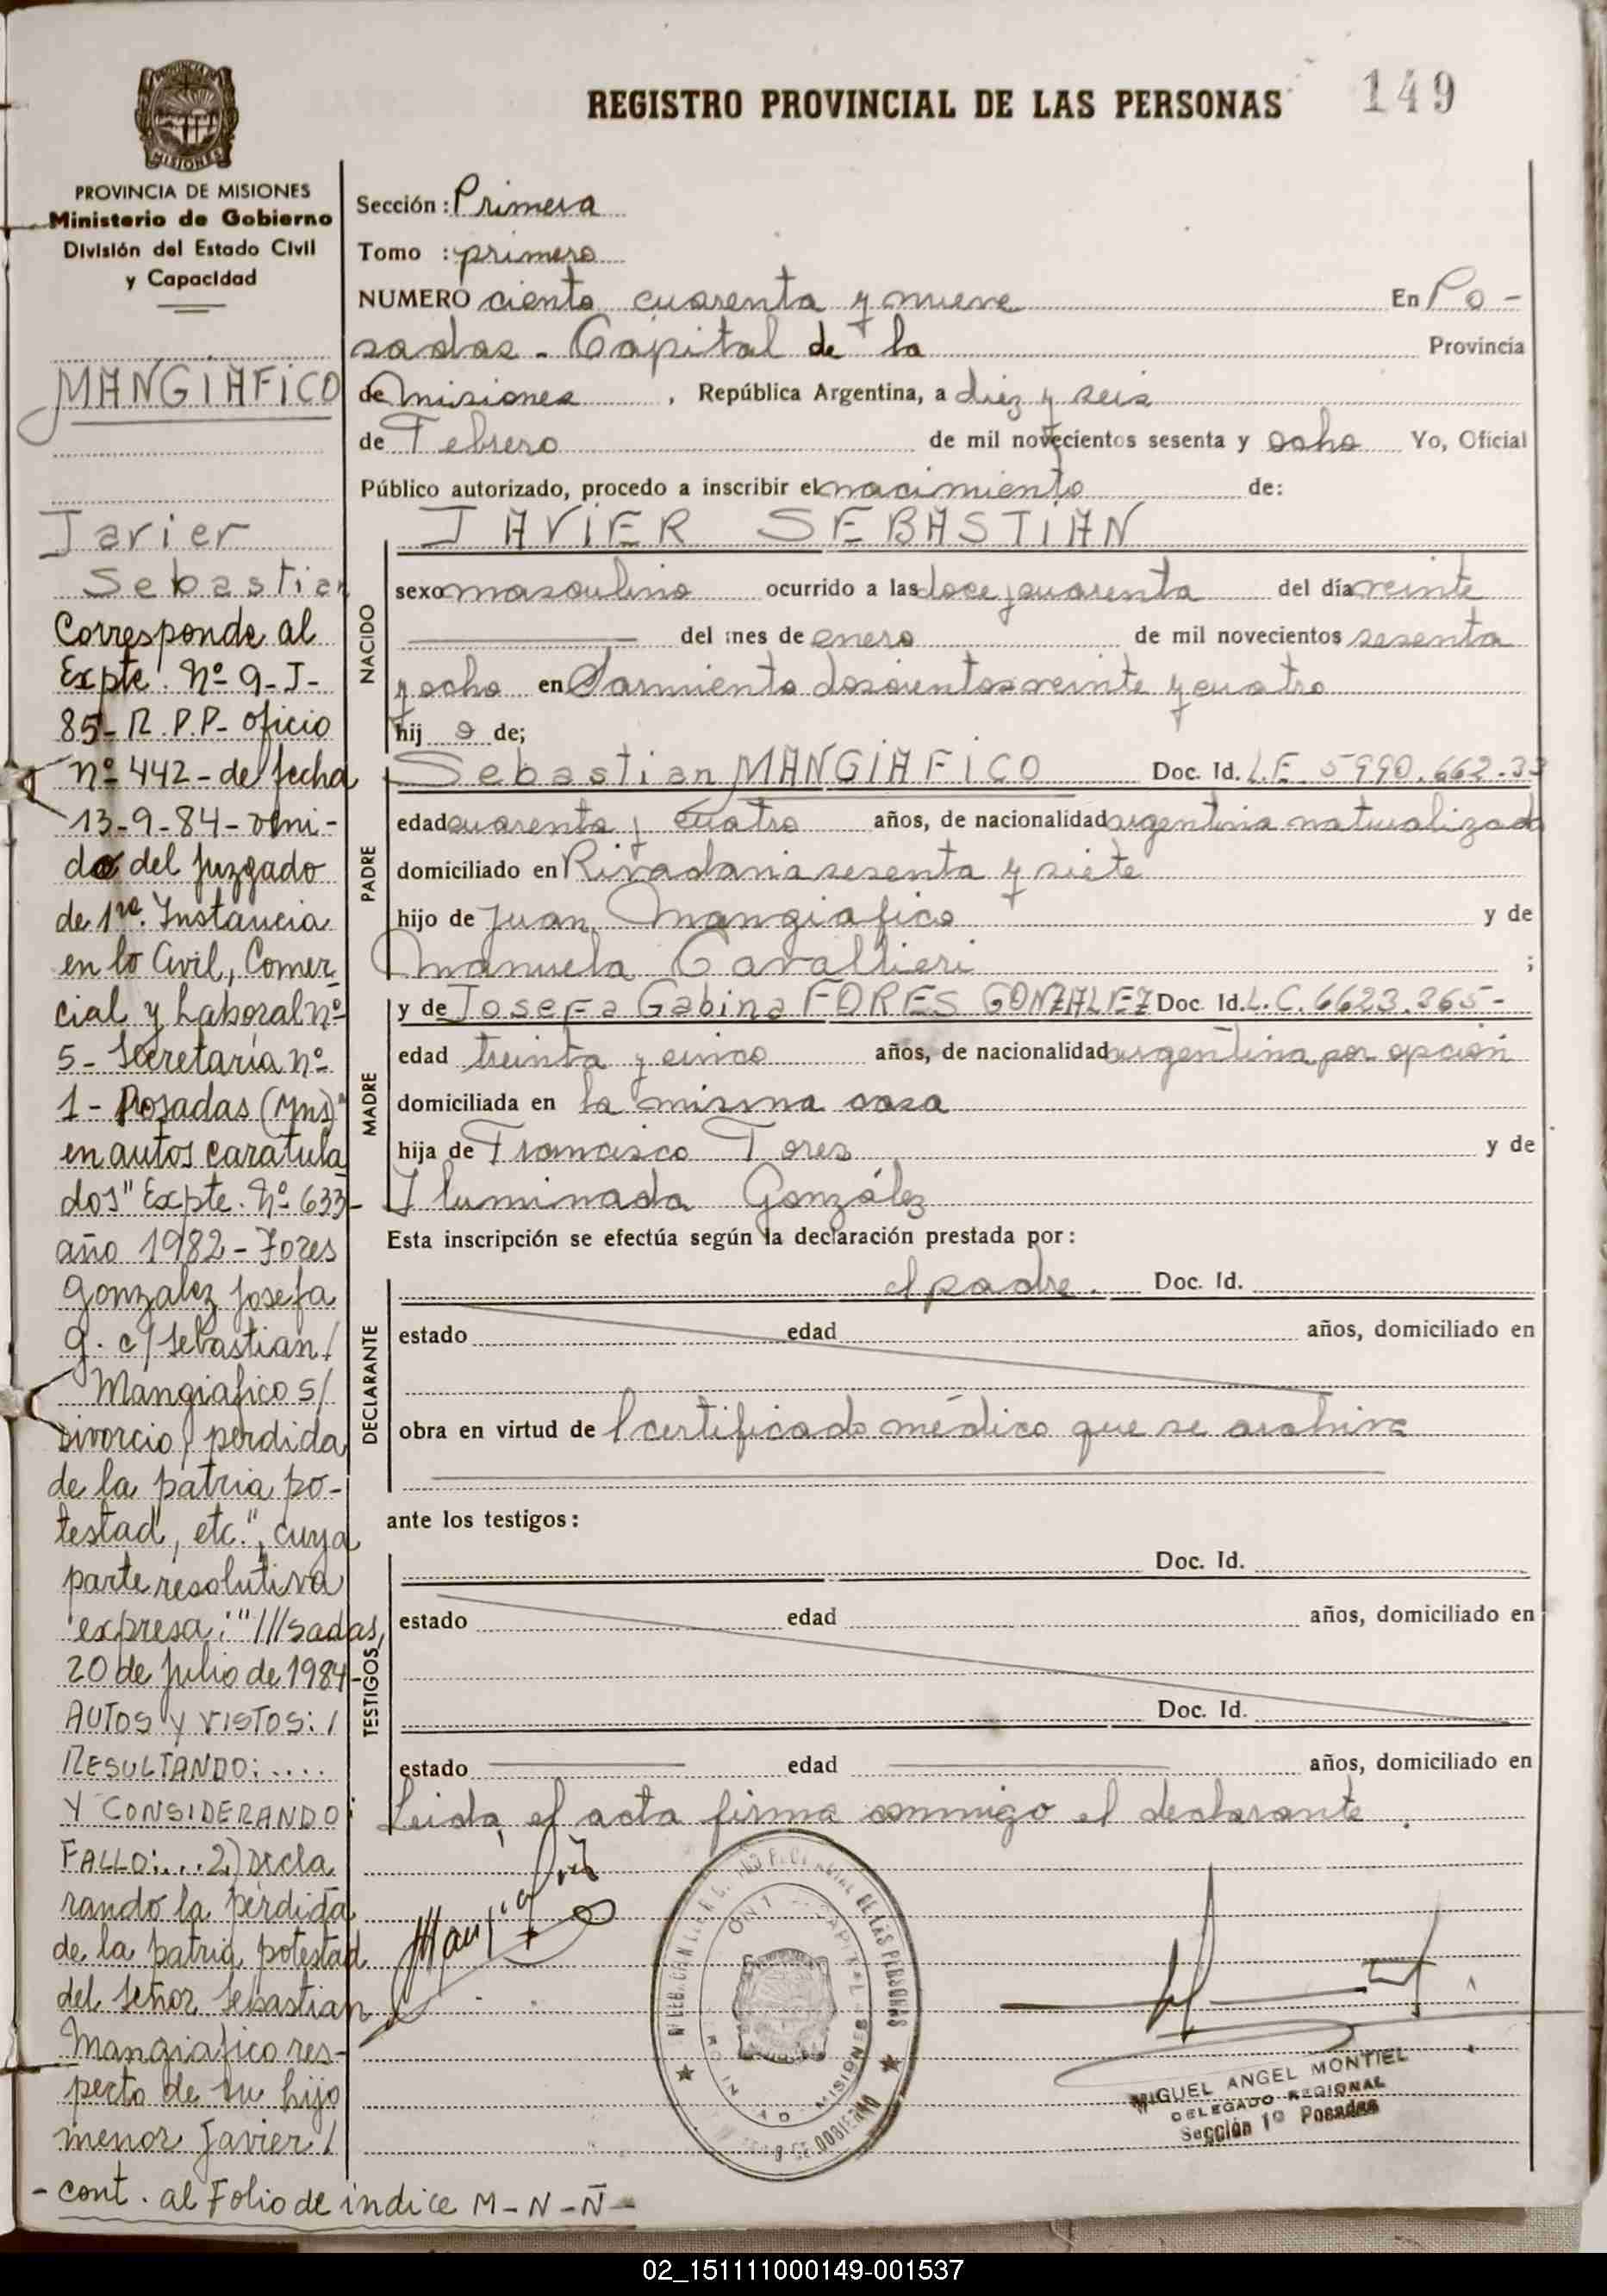 REGISTRO PROVINCIAL DE LAS PERSONAS 149
MISIONES
PROVINCIA DE MISIONES
Ministerio de Gobierno
División del Estado Civil
y Capacidad
MANGIAFICO
Javier
Sebastian
Corresponde al
Expte. Nº 9-J-
85- R.P.P- oficio
nº 442- de fecha
13-9-84- veni-
do del Juzgado
de 1ra. Instancia
en lo Civil, Comer
cial y Laboral nº
5- Secretaría nº
1- Posadas (Mns)
en autos caratula
dos "Expte. Nº 633-
año 1982- Fores
Gonzalez Josefa
G. c/ Sebastian/
Mangiafico s/
Divorcio, perdida
de la patria po-
testad, etc.", cuya
parte resolutiva
expresa: "///sadas,
20 de Julio de 1984-
AUTOS Y VISTOS: /
RESULTANDO: ....
Y CONSIDERANDO:
FALLO: ... 2) Decla
rando la pérdida
de la patria potestad
del señor Sebastian
Mangiafico res-
pecto de su hijo
menor Javier /
- cont. al Folio de indice M-N-Ñ-
Sección: Primera
Tomo : primero
NUMERO ciento cuarenta y nueve En Po-
sadas - Capital de la Provincia
de Misiones , República Argentina, a diez y seis
de Febrero de mil novecientos sesenta y ocho Yo, Oficial
Público autorizado, procedo a inscribir el nacimiento de:
JAVIER SEBASTIAN
NACIDO
sexo masculino ocurrido a las doce y cuarenta del día veinte
del mes de enero de mil novecientos sesenta
y ocho en Sarmiento doscientos veinte y cuatro
hij o de;
PADRE
Sebastian MANGIAFICO Doc. Id. L.E. 5990.662.33
edad cuarenta y cuatro años, de nacionalidad argentina naturalizado
domiciliado en Rivadavia sesenta y siete
hijo de Juan Mangiafico y de
Manuela Cavallieri ;
MADRE
y de Josefa Gabina FORES GONZALEZ Doc. Id. L.C. 6623.365-
edad treinta y cinco años, de nacionalidad argentina por opción
domiciliada en la misma casa
hija de Francisco Fores y de
Iluminada González
Esta inscripción se efectúa según la declaración prestada por:
DECLARANTE
el padre. Doc. Id.
estado edad años, domiciliado en
obra en virtud de l certificado médico que se archiva
ante los testigos:
TESTIGOS
Doc. Id.
estado edad años, domiciliado en
Doc. Id.
estado edad años, domiciliado en
Leida el acta firma conmigo el declarante.
DE LAS PERSONAS
CAPITAL
MISIONES
MIGUEL ANGEL MONTIEL
DELEGADO REGIONAL
Sección 1ª Posadas
02_151111000149-001537